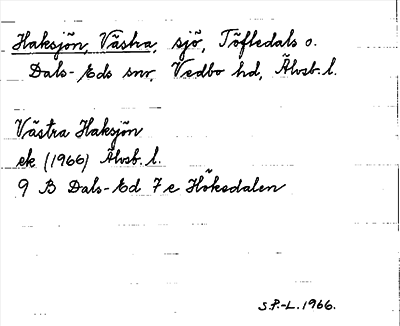 Haksjön, Västra, sjö, Töftedals o.
Dals-Eds snr, Vedbo hd, Älvsb. l.
Västra Haksjön
ek (1966) Älvsb. l.
9 B Dals-Ed 7 e Höksdalen
S.P.-L. 1966.